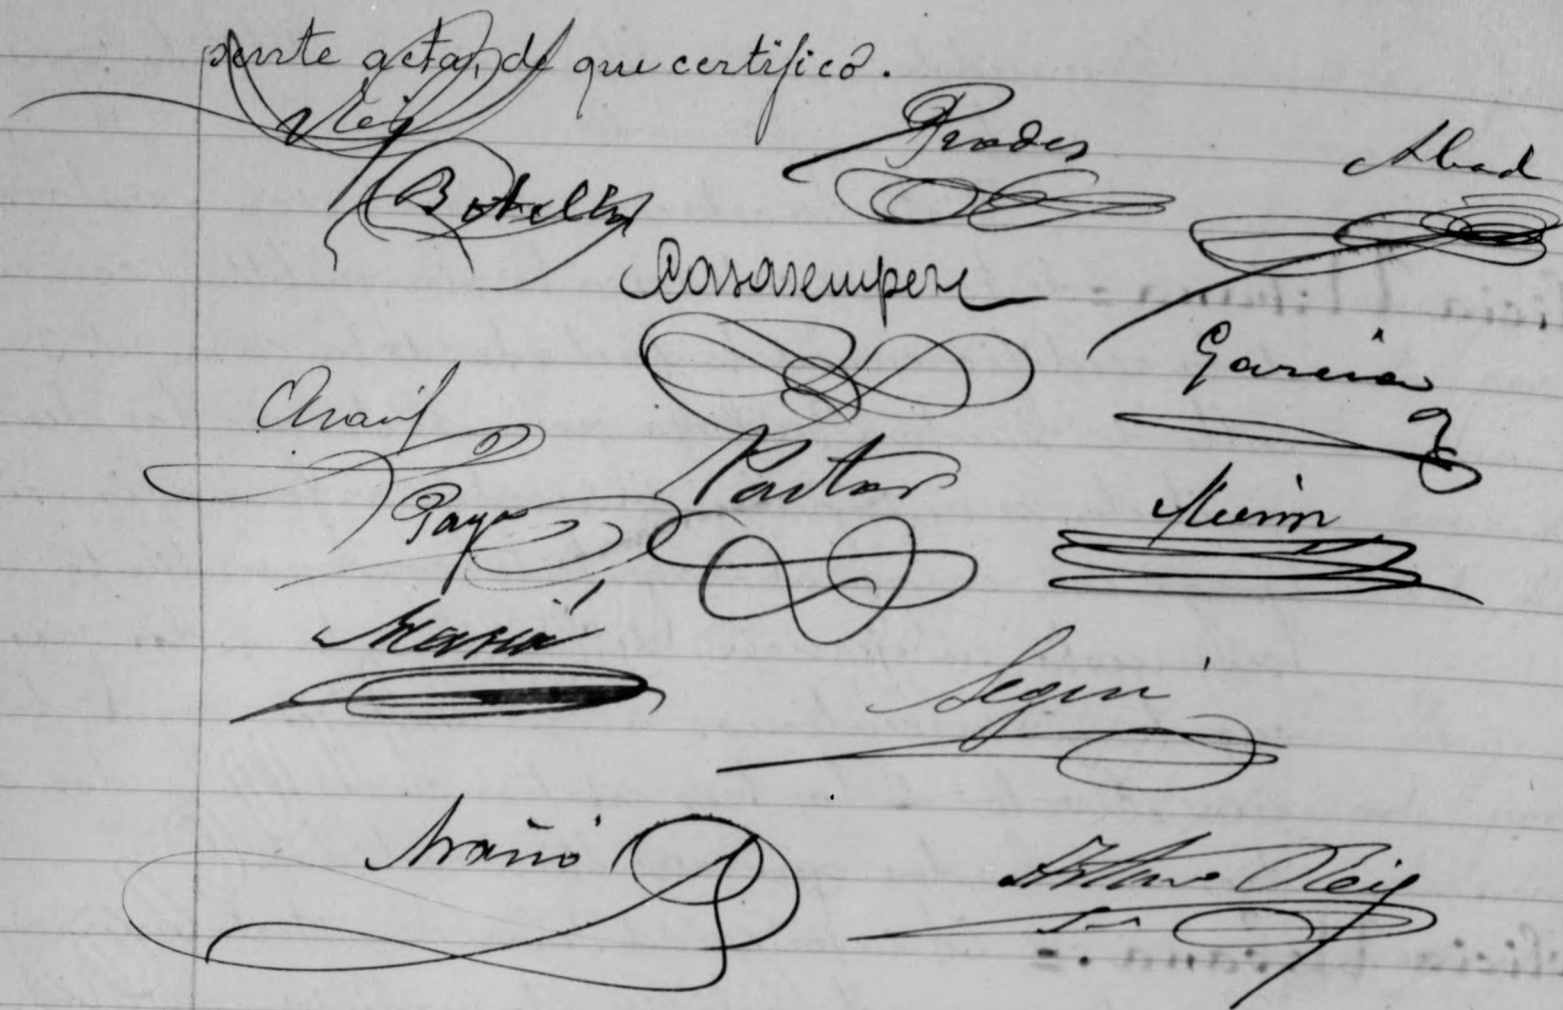 sente acta, de que certifico.
Reig
Botella
Prodes
Abad
Casasempere
García
Aracil
Pastor
Payá
Mariá
Seguí
Arturo Reig